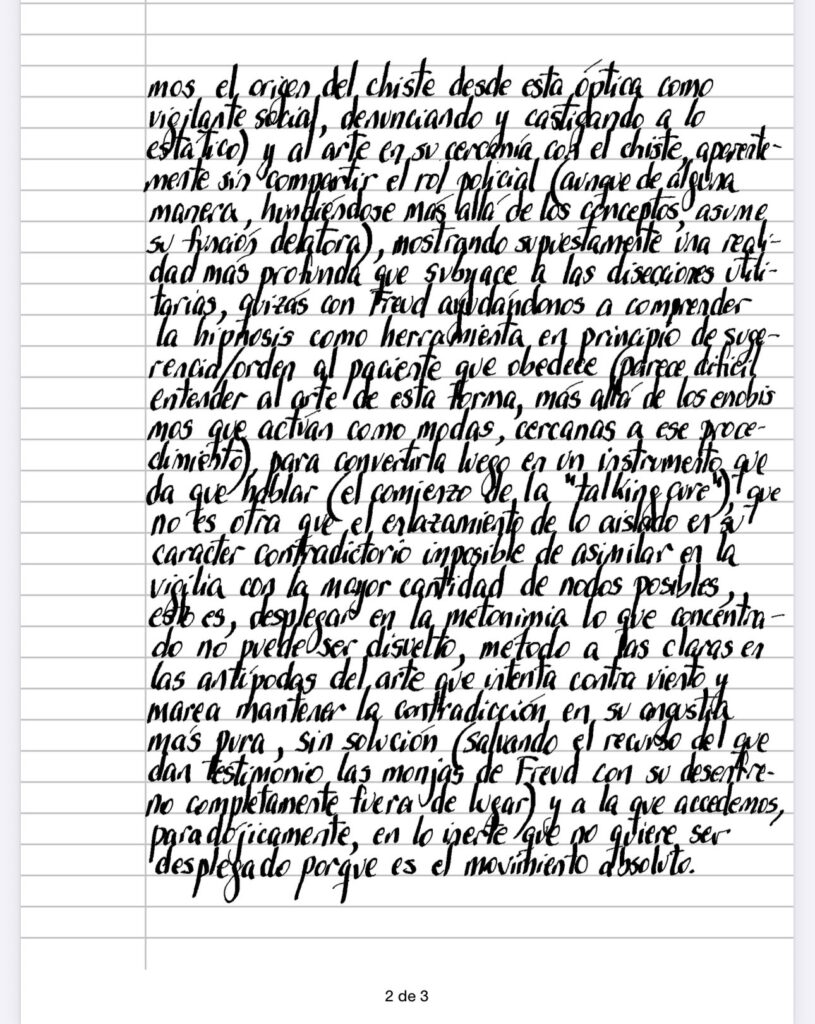 mos el origen del chiste desde esta óptica como
vigilante social, denunciando y castigando a lo
estático) y al arte en su cercanía con el chiste, aparente-
mente sin compartir el rol policial (aunque de alguna
manera, hundiéndose más allá de los conceptos, asume
su función delatora), mostrando supuestamente una reali-
dad más profunda que subyace a las disecciones utili-
tarias, quizás con Freud ayudándonos a comprender
la hipnosis como herramienta en principio de suge-
rencia/orden al paciente que obedece (parece difícil
entender al arte de esta forma, más allá de los enobis
mos que actúan como modas, cercanas a ese proce-
dimiento), para convertirla luego en un instrumento que
da que hablar (el comienzo de la "talking cure"), que
no es otra que el enlazamiento de lo aislado en su
carácter contradictorio imposible de asimilar en la
vigilia con la mayor cantidad de nodos posibles,
esto es, desplegar en la metonimia lo que concentra-
do no puede ser disuelto, método a las claras en
las antípodas del arte que intenta contra viento y
marea mantener la contradicción en su angustia
más pura, sin solución (salvando el recurso del que
dan testimonio las monjas de Freud con su desenfre-
no completamente fuera de lugar) y a la que accedemos,
paradójicamente, en lo inerte que no quiere ser
desplegado porque es el movimiento absoluto.
2 de 3